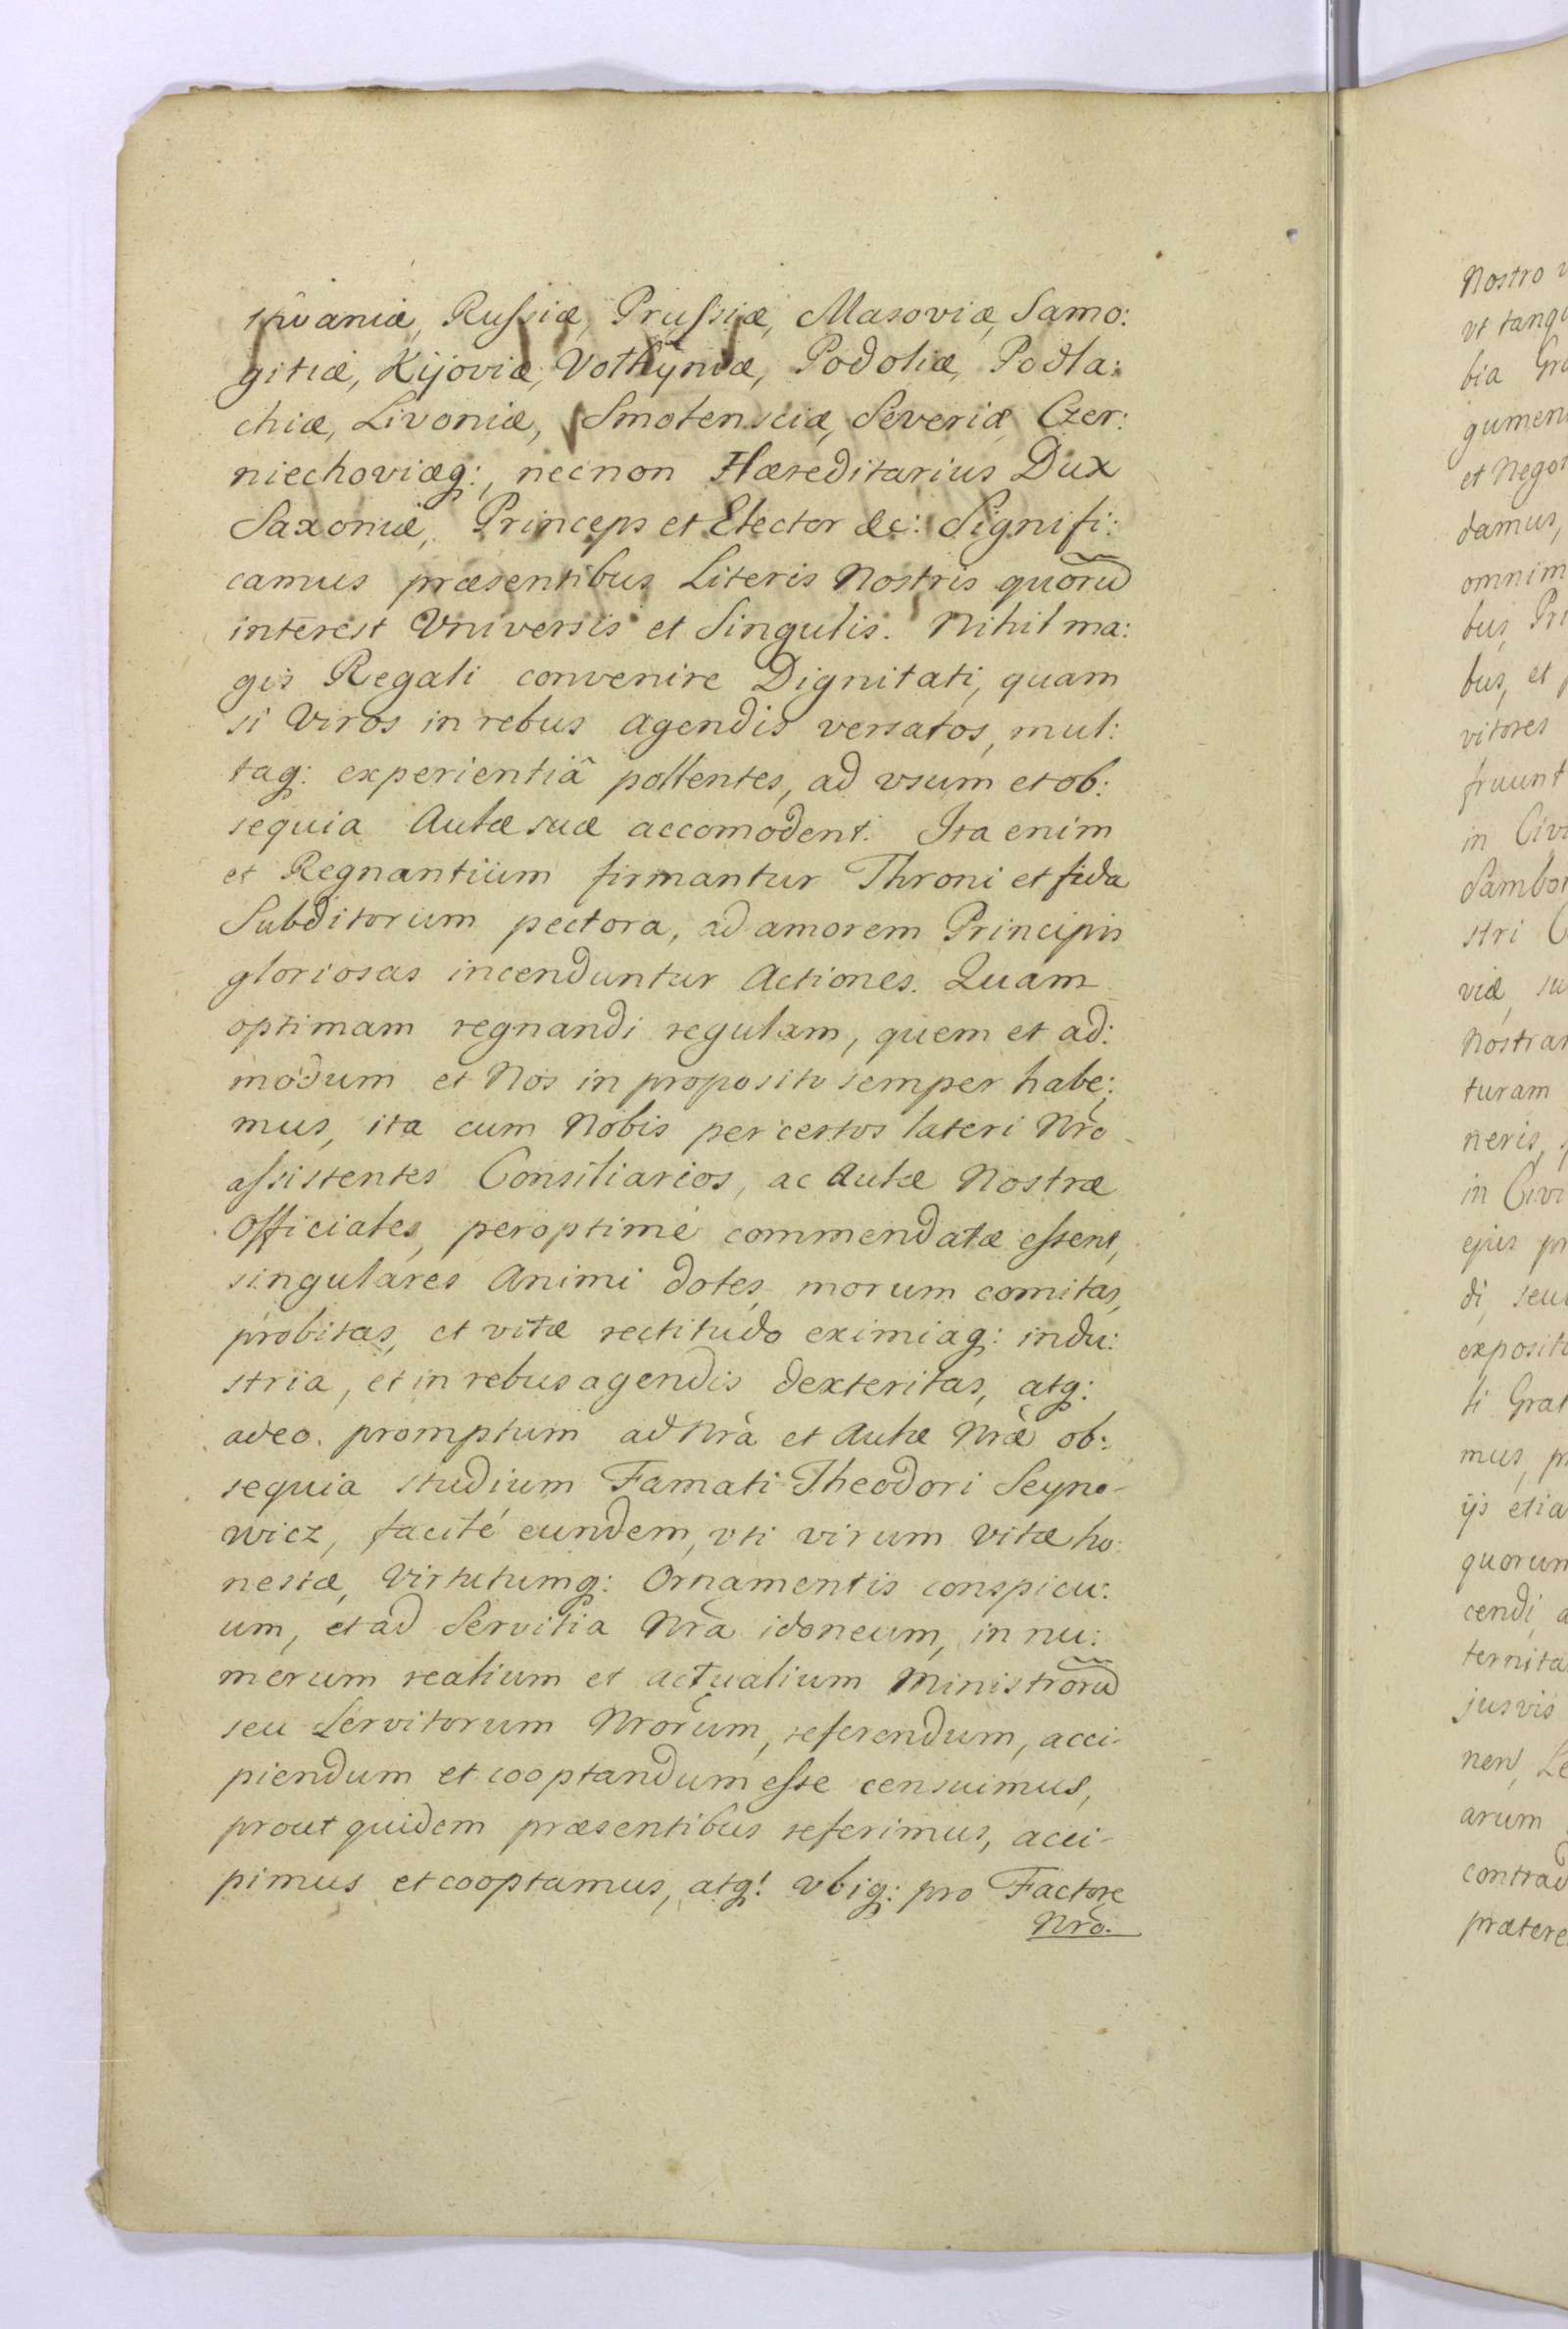 thvaniæ, Russiæ, Prussiæ, Masoviæ, Samo:
gitiæ, Kijoviæ, Volhÿniæ, Podoliæ, Podla:
chiæ, Livoniæ, Smolensciæ, Severiæ Czer:
niechoviæq:, necnon Hæreditarius Dux
Saxoniæ, Princeps et Elector &c: Signifi:
camus præsentibus Literis Nostris quorũ
interest Vniversis et Singulis. Nihil ma:
gis Regali convenire Dignitati, quam
si Viros in rebus agendis versatos, mul:
taq: experientiâ pollentes, ad vsum et ob:
sequia Aulæ suæ accomodent. Ita enim
et Regnantium firmantur Throni et fida
Subditorum pectora, ad amorem Principis
gloriosas incenduntur Actiones. Quam
optimam regnandi regulam, quem et ad:
modum et Nos in proposito semper habe:
mus, ita cum Nobis per certos lateri Nrõ
assistentes Consiliarios, ac Aulæ Nostræ
Officiales, peroptimè commendatæ essent,
singulares Animi dotes, morum comitas,
probitas, et vitæ rectitudo eximiaq: indu:
stria, et in rebus agendis dexteritas, atq:
adeo promptum ad Nrã et Aulæ Nræ̃ ob:
sequia studium Famati Theodori Seyno-
wicz, facilé eundem, vti virum vitæ ho:
nestæ, Virtutumq: Ornamentis conspicu:
um, et ad Servitia Nrã idoneum, in nu:
merum realium et actualium Ministrorũ
seu Servitorum Nrõrum, referendum, acci-
piendum et cooptandum esse censuimus,
prout quidem præsentibus referimus, acci-
pimus et cooptamus, atq: vbiq: pro Factore
Nrõ.
Nostro
vt tanq
bia
gumen
et Nego
damus,
omnim
bus, Pri
bus, et
vitores
fruunt
in Civi
Sambor
stri
viæ, su
Nostra
turam
neris,
in Civi
ejus pr
di, seu
exposit
ti Grat
mus, p
ijs etia
quorum
cendi, a
ternita
jusvis
nen, Le
arum
contrad
prætere